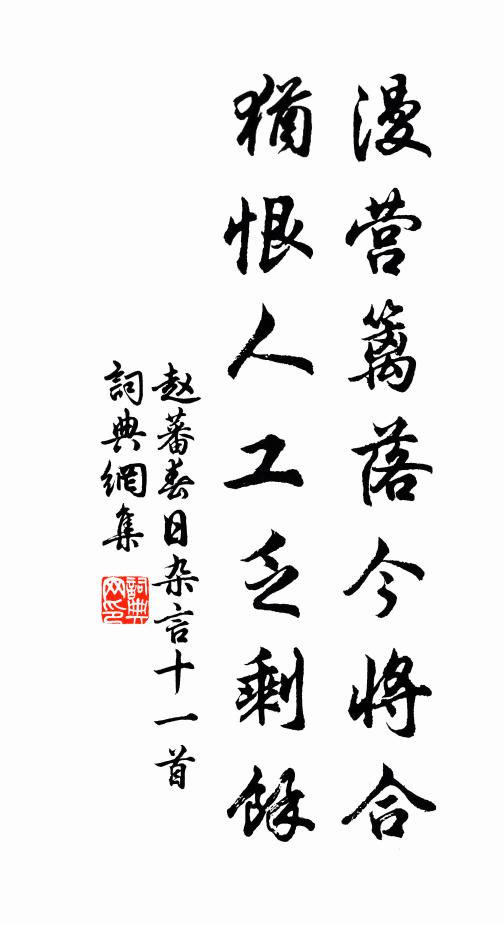 漫营篱落今将合
犹恨人工乏剩馀
赵蕃春日杂言十一首
詞典網集
詞典網印